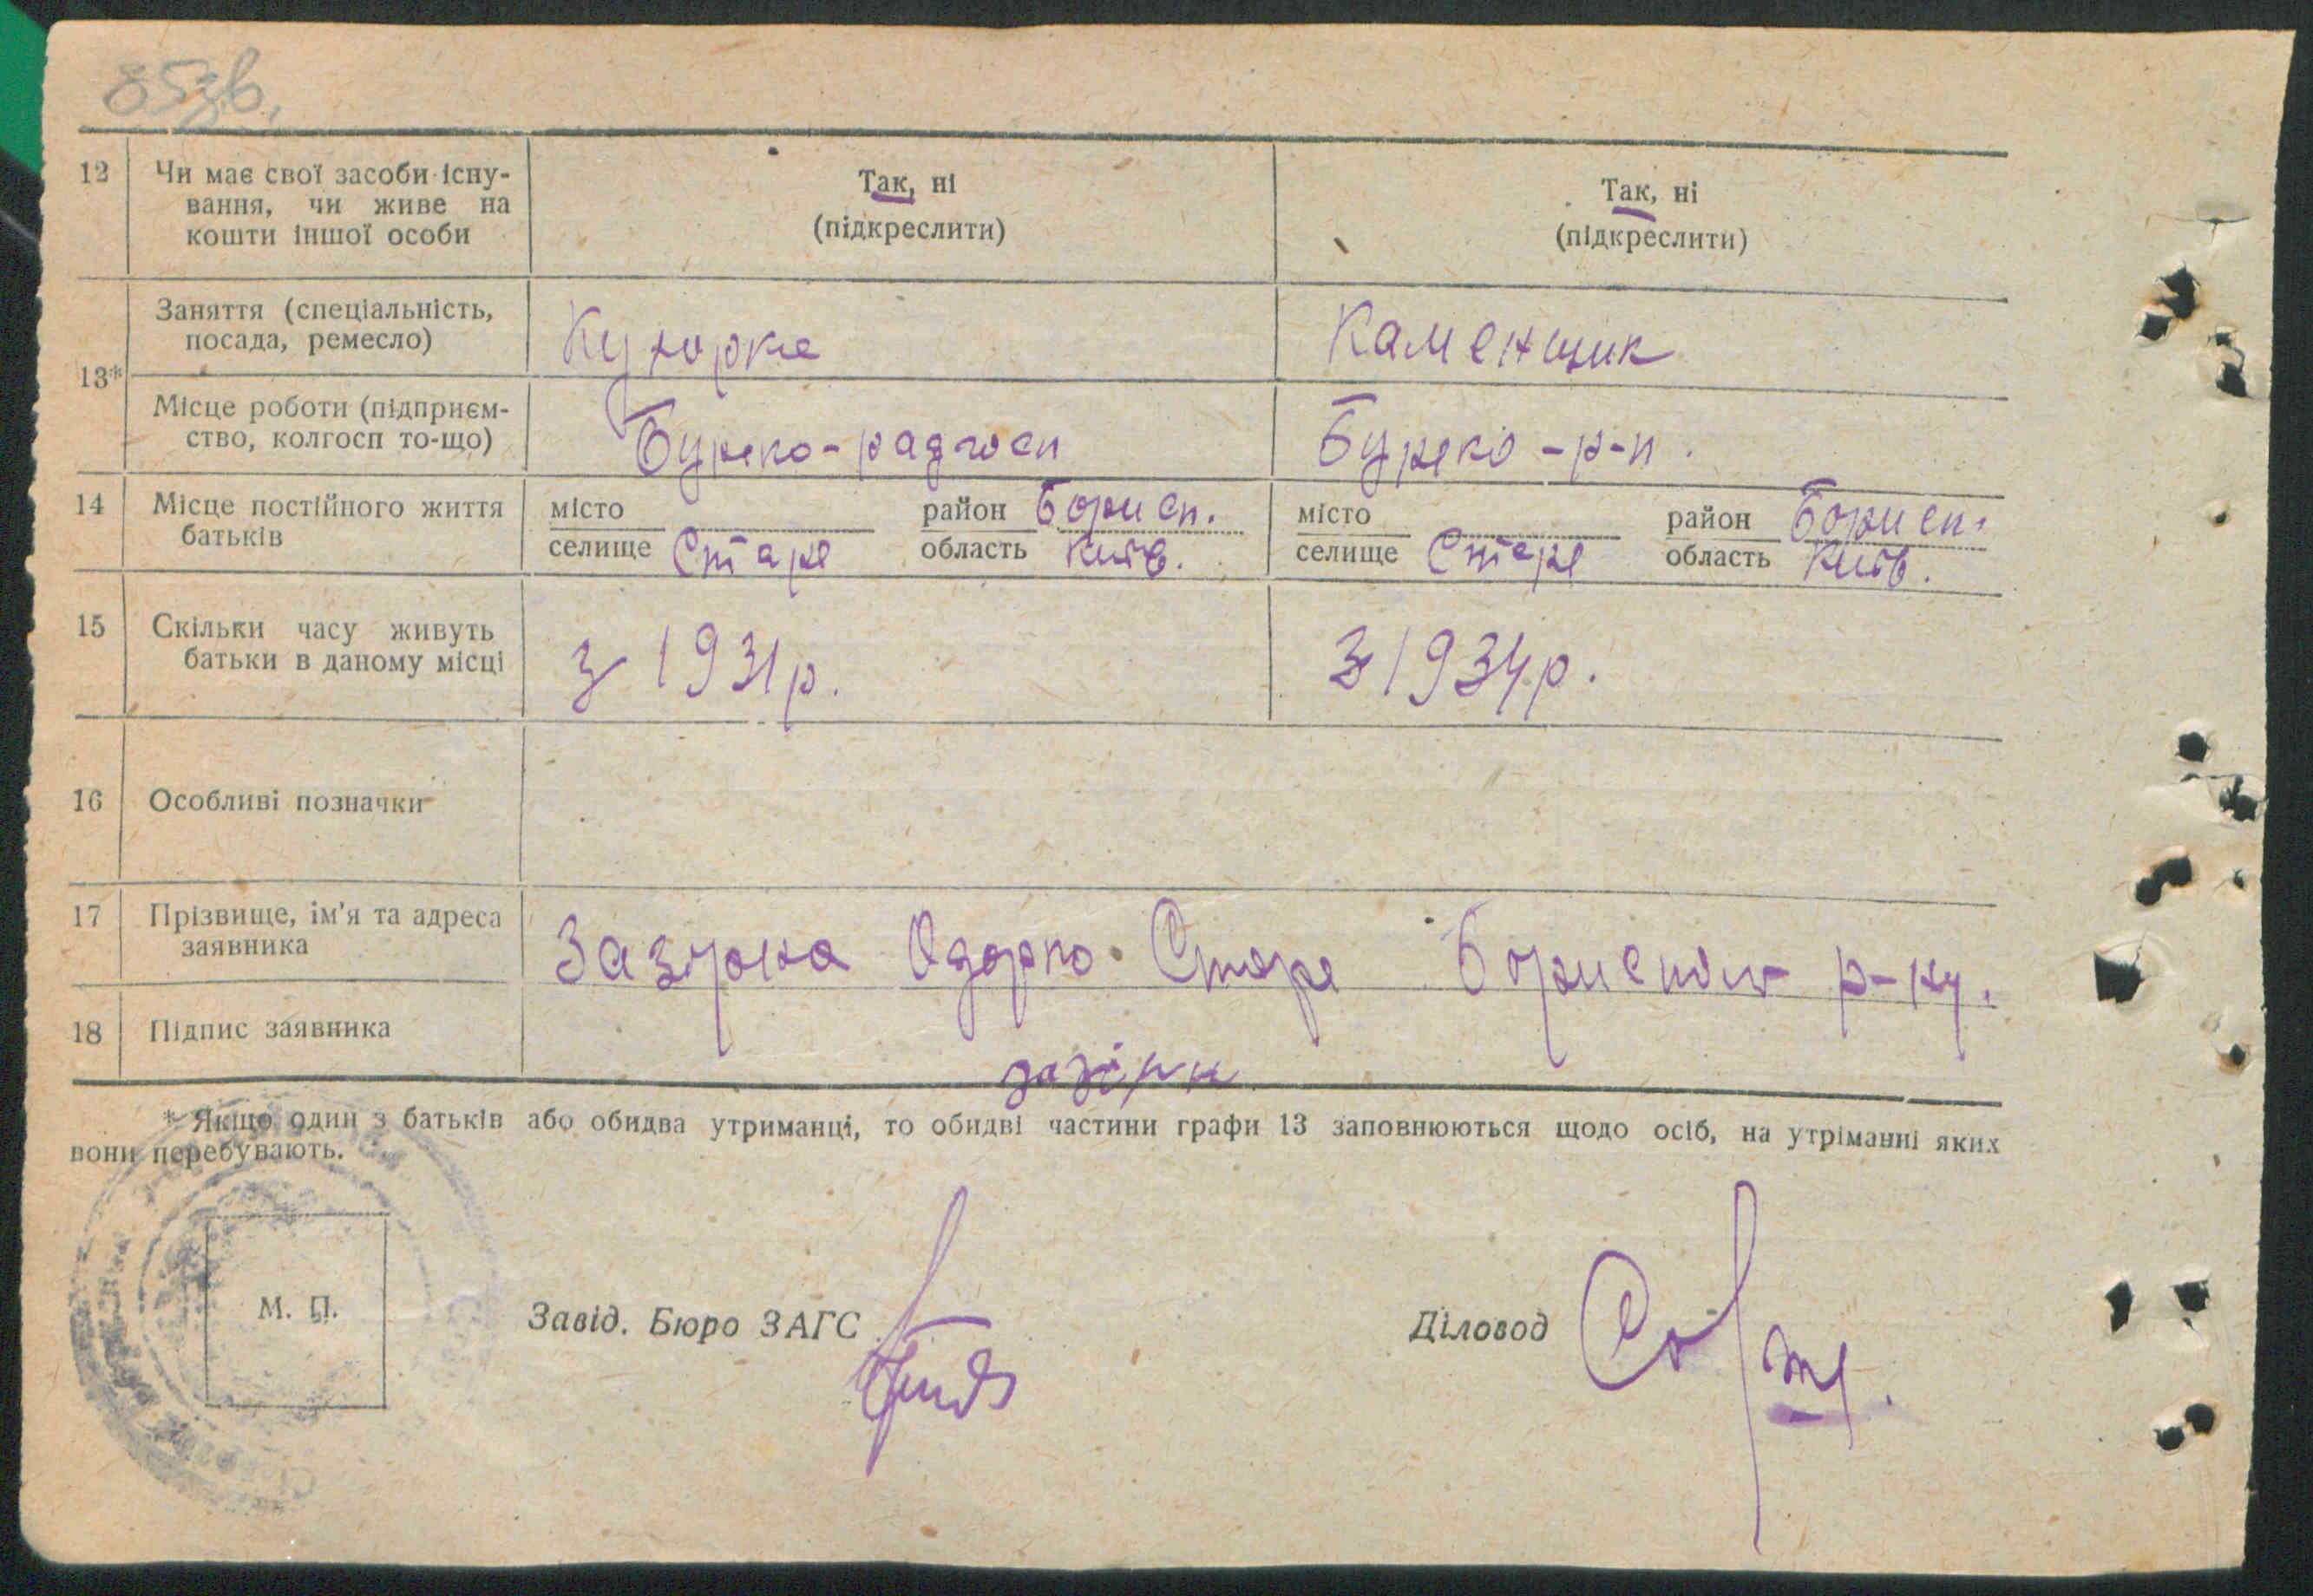 85зв.
12 Чи має свої засоби існу- Так, ні Так, ні
вання, чи живе на (підкреслити) (підкреслити)
кошти іншої особи
Заняття (спеціальність, Кухарка Каменщик
посада, ремесло)
13*
Місце роботи (підприєм- Буряко-радгосп Буряко-р-п.
ство, колгосп то-що)
14 Місце постійного життя місто район Борисп. місто район Борисп.
батьків селище Старе область Київ. селище Старе область Київ.
15 Скільки часу живуть з 1931р. з 1934р.
батьки в даному місці
16 Особливі позначки
17 Прізвище, ім'я та адреса Одарка Старе р-ну.
заявника
18 Підпис заявника
* Якщо один з батьків або обидва утриманці, то обидві частини графи 13 заповнюються щодо осіб, на утріманні яких
вони перебувають.
М. П. Завід. Бюро ЗАГС Діловод